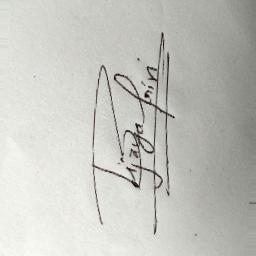 Vijaya Jain